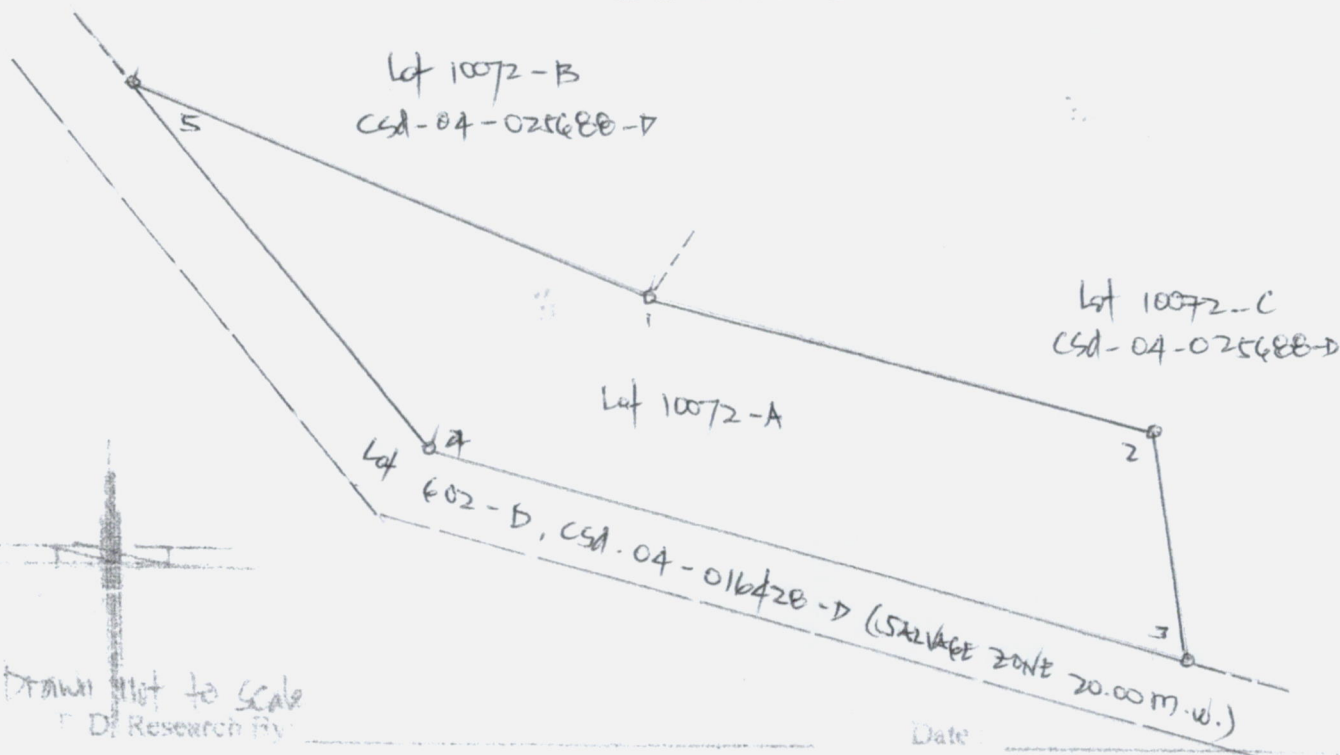 Lot 10072-B
Csd-04-025688-D
5
1
Lot 10072-C
Csd-04-025688-D
Lot 10072-A
2
4
Lot 602-D, Csd.04-016428-D (SALVAGE ZONE 20.00 m.w.)
3
Drawn not to scale
Research By
Date